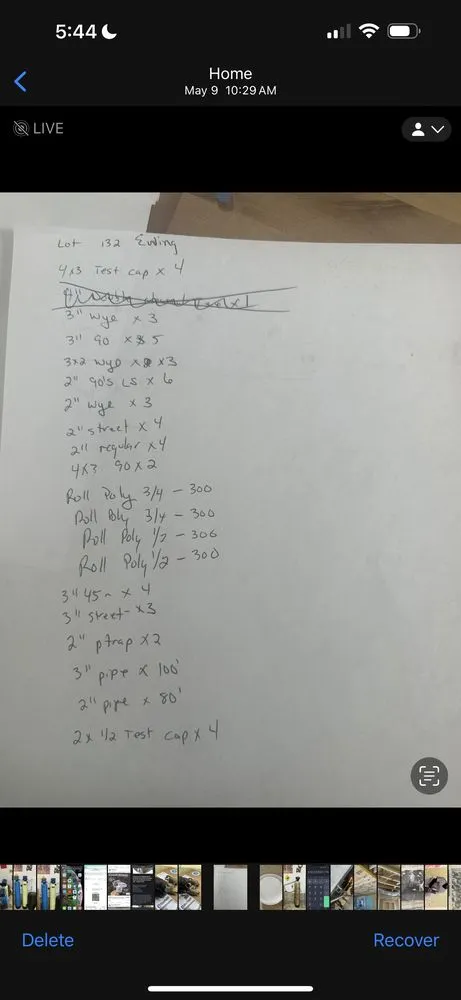 5:44
Home
May 9 10:29 AM
LIVE
Lot 132 Ewing
4x3 Test cap x 4
3" wye x 3
3" 90 x 5
3x2 wye x x3
2" 90's LS x 6
2" wye x 3
2" street x 4
2" regular x4
4x3 90 x 2
Roll Poly 3/4 - 300
Roll Poly 3/4 - 300
Roll Poly 1/2 - 300
Roll Poly 1/2 - 300
3" 45 x 4
3" street - x3
2" ptrap x2
3" pipe x 100'
2" pipe x 80'
2 x 1/2 Test cap x 4
Delete
Recover